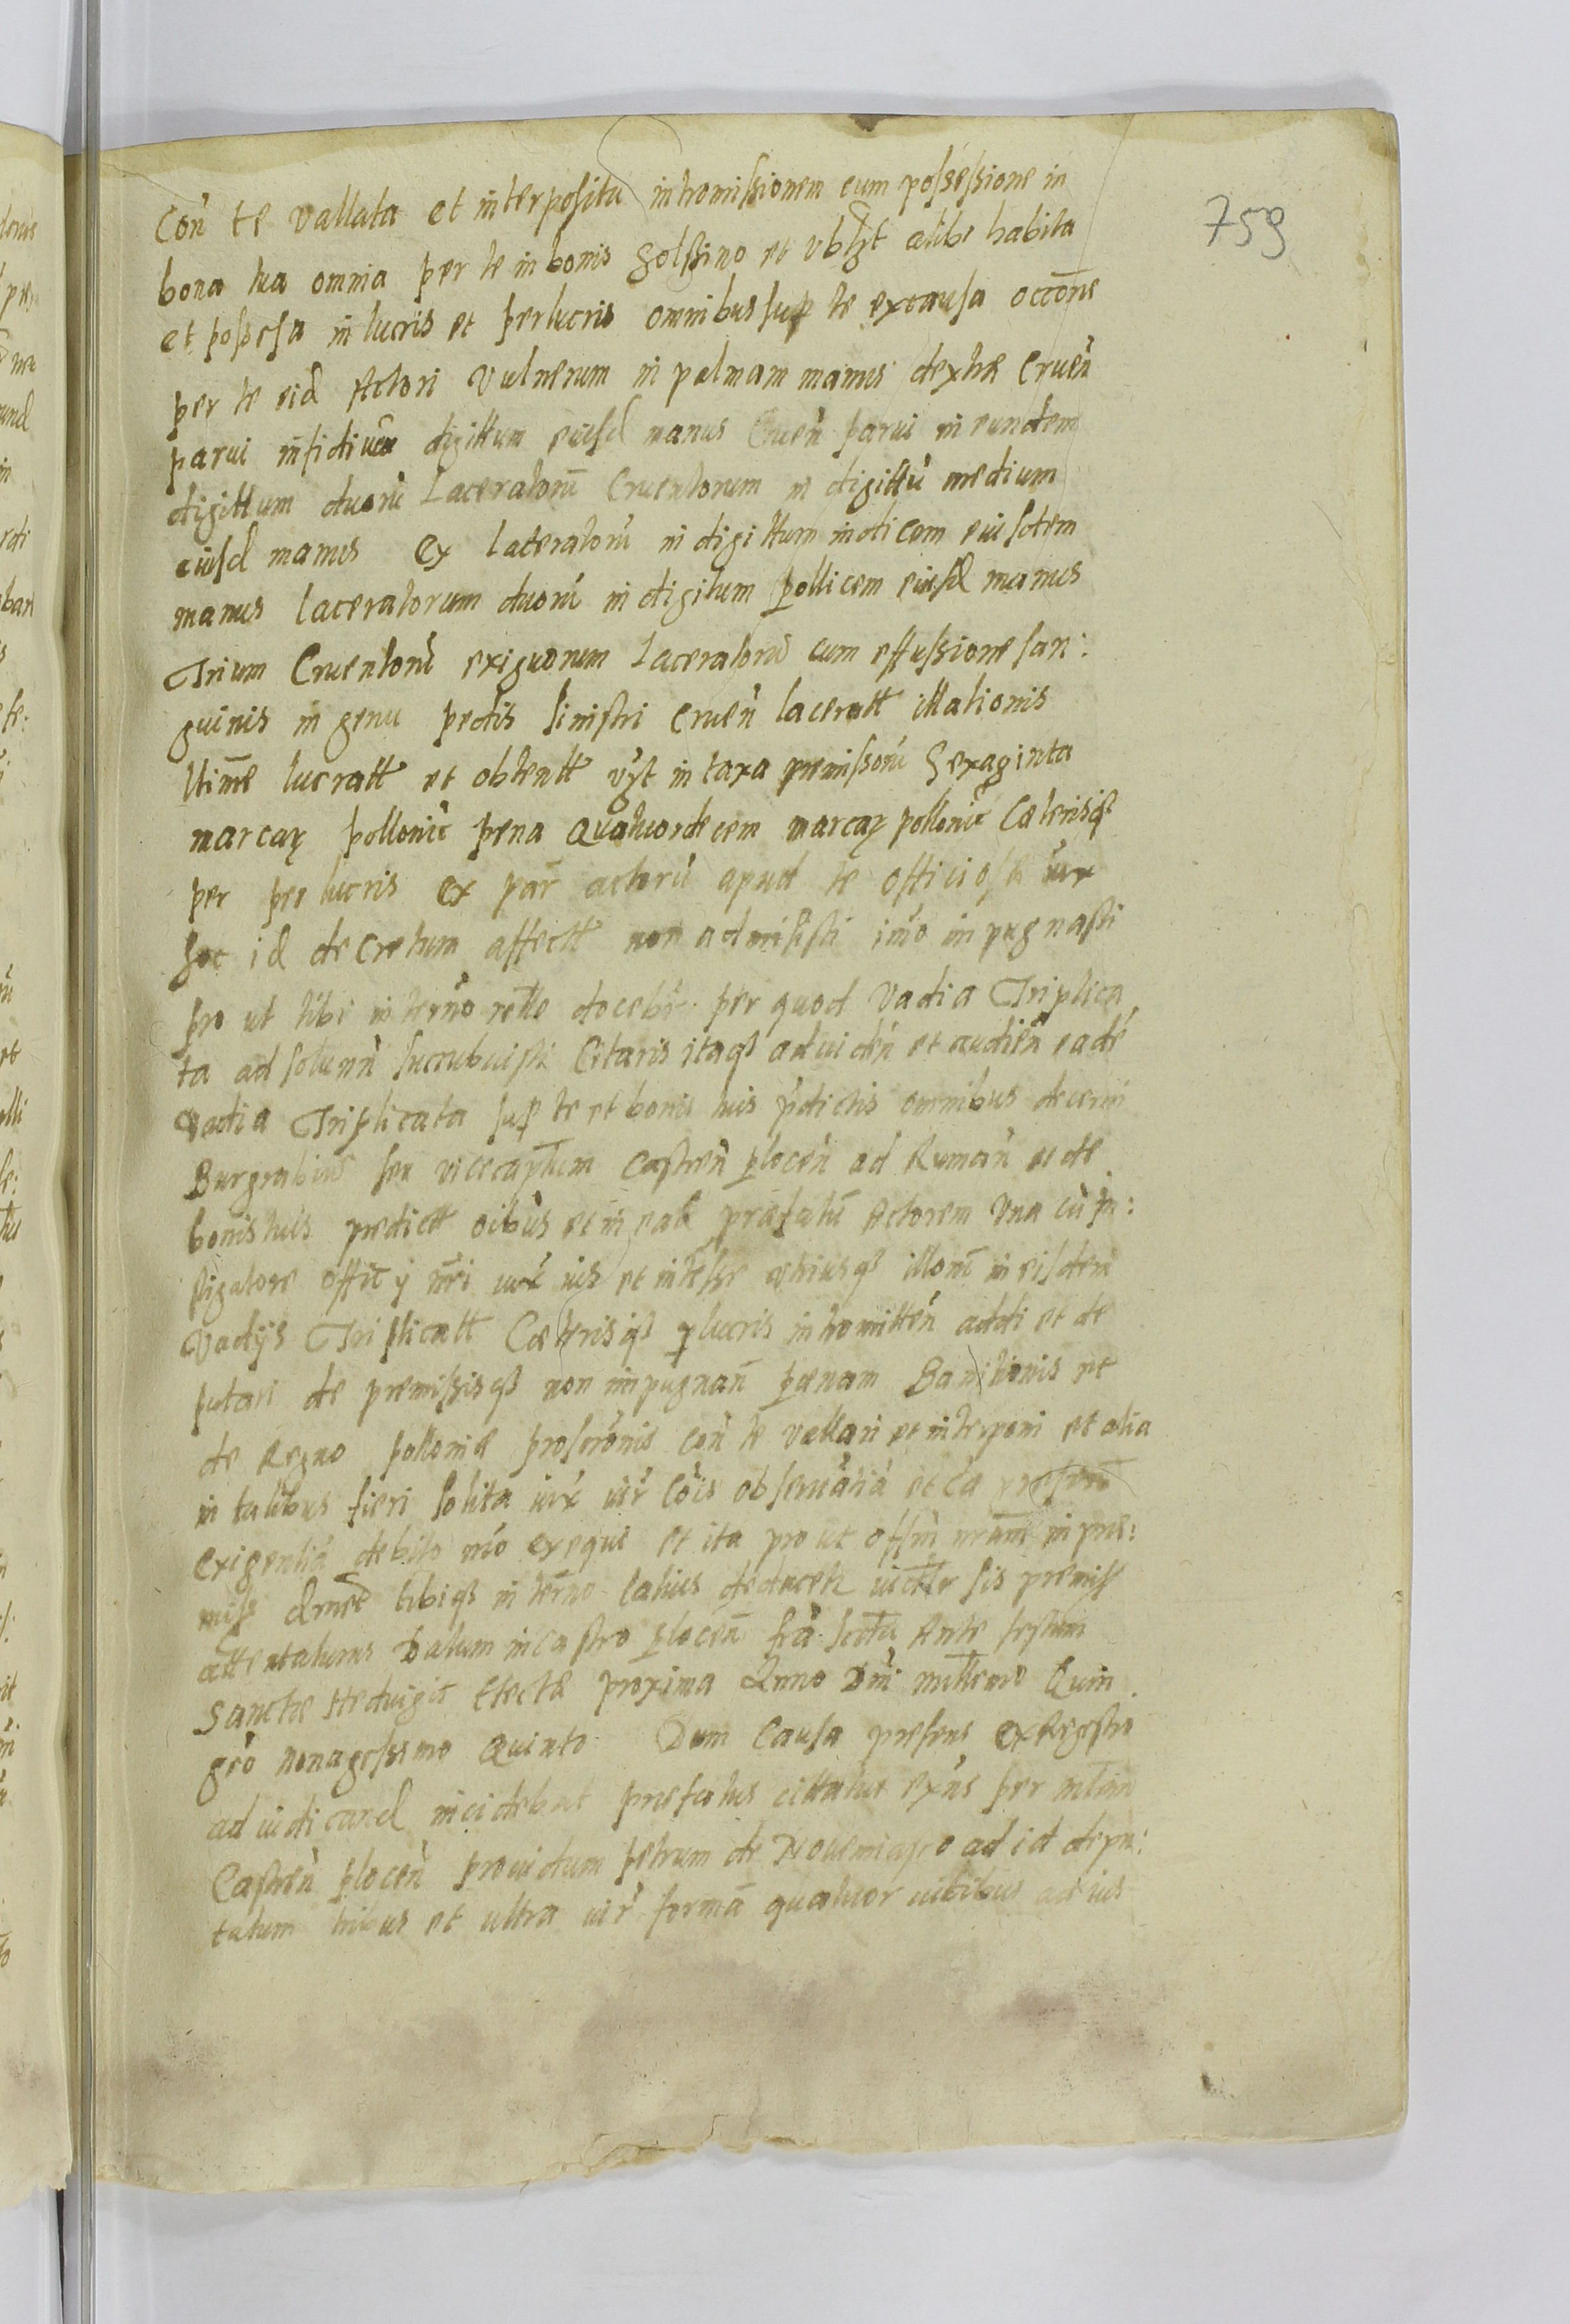 759
Con̄ te vallata et interposita intromissionem cum possessione in
bona tua omnia per te in bonis Golssino et vblȝt alibi habita
et possessa in lucris et perlucris omnibus sup te ex causa occōne
per te eid Actori vulnerum in palmam manus dextræ Cruen̄
parui in digittum eiusd manus Cruen̄ parui in eundem
digittum duorū Laceratorū Cruentorum in digittū medium
eiusd manus Ex lateralorū in digittum indicem eiusdem
manus laceratorum duorū in digitum pollicem eiusd manus
Trium Cruentorū exiguorum laceratorū cum effussione san:
guinis in genu pedis sinistri Cruen̄ laceratt illationis
ltime lucratt et obtentt vȝt in taxa premissorū Sexaginta
marcaȝ pollonic pena Quatuordecem marcaȝ pollonic Cæterisqȝ
per perlucris ex par̄ actorū apud te officiose iux
hoc id decretum affectt non admisisti imo inpugnasti
pro ut tibi in termo docebr̄ per quod vadia Triplica
ta ad soluen̄ succubuisti Citaris itaqȝ ad viden̄ et audien̄ eadē
vadia Triplicata sup te et bonis tuis p̄dictis omnibus decerni
Burgrabium seu vicecaptum Castren̄ plocen̄ ad Ruman̄ et de
bonis tuis predictt oībus et in ea præfatū Actorem Vna cū In:
stigatore officy nr̄i iux ius et interesse vtriusqȝ illorū in eisdem
Vadijs Triplicatt Cæterisqȝ plucris intromitten̄ addi et de
putari de premissisqȝ non impugnan̄ pænam Banitionis et
de Regno polloniæ proscrōnis con̄ te vallari et interponi et alia
in talibus fieri solita iux iur̄ cōis obseruātiā et cā
exigentiā debito mō exequi et ita pro ut offm nr̄um in pre:
miss tibiqȝ in termo latius deducetr sis premiss
attentaturus Datum in Castro plocen̄ fr̄ā Ante festum
Sanctæ Heduigis Electæ proxima Anno Dni millemo Quin
gēo nonagessimo Quinto Dum Causa presens ex Regestro
ad iudicand incidebat prefatus cittatus exn̄s per mlem
Castren̄ plocen̄ prouidum petrum de ad id depu:
tatum tribus et vltra iur̄ formā quatuor vicibus ad ius